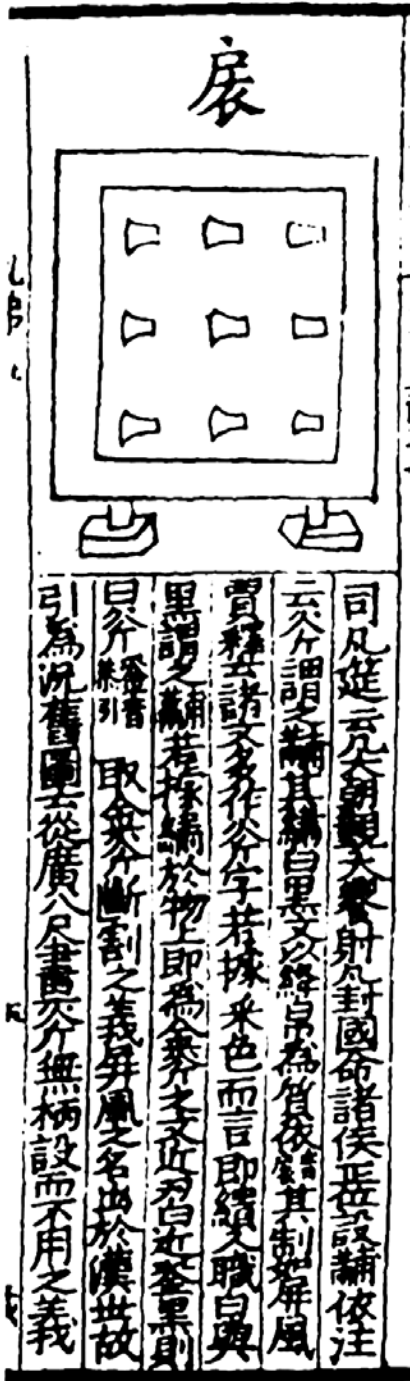 扆
司几筵云凡大朝覲大饗射凡封國命諸侯王位設黼依注
云斧謂之黼其繡白黑文以絳帛為質依其制如屏風
賈釋云諸文多作斧字若據采色而言即繢人職白與
黑謂之黼若據繡於物上即為金斧之文近刃白近銎黑則
曰斧銎音取金斧斷割之義屏風之名出於漢世故
引為況舊圖云從廣八尺畫斧無柄設而不用之義